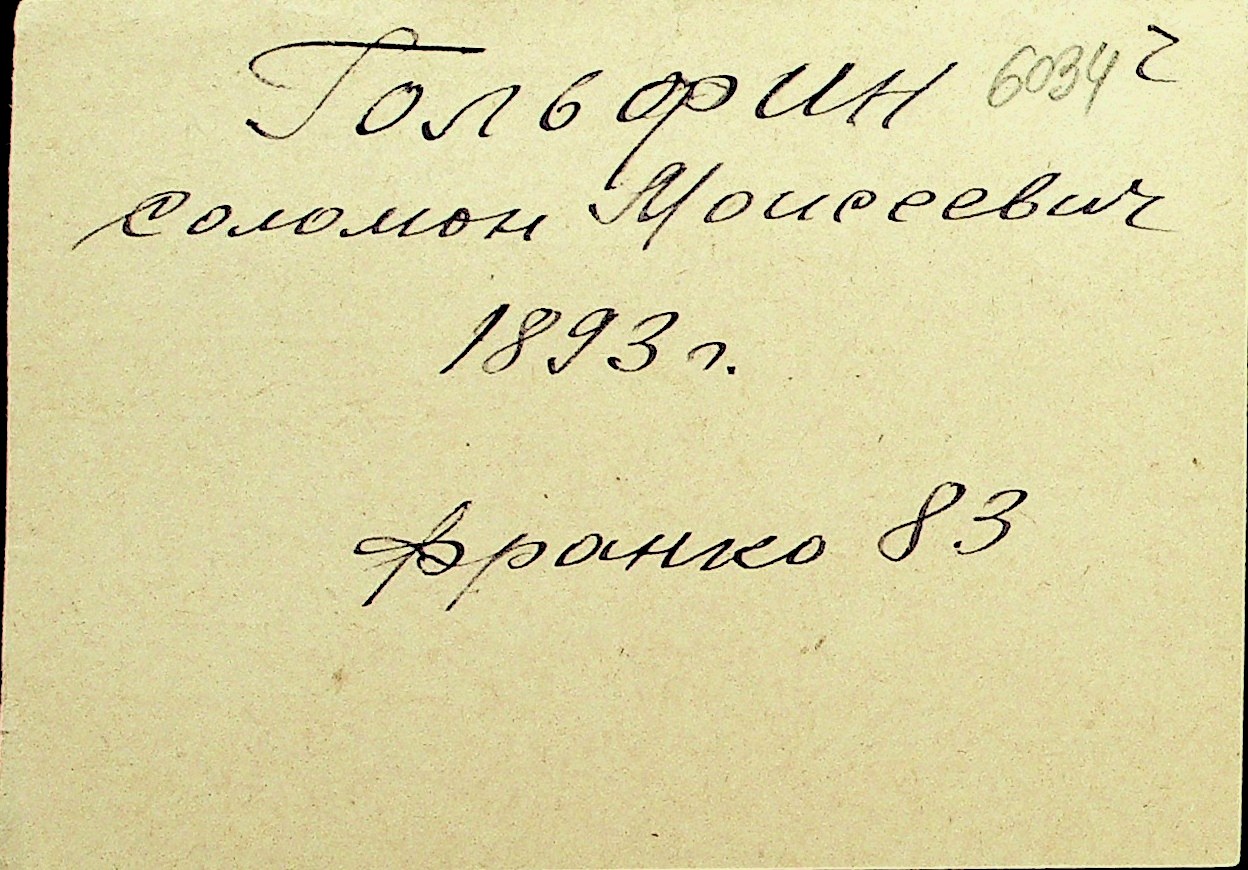 Гольфин 6034 г
Соломон Моисеевич
1893 г.
Франко 83